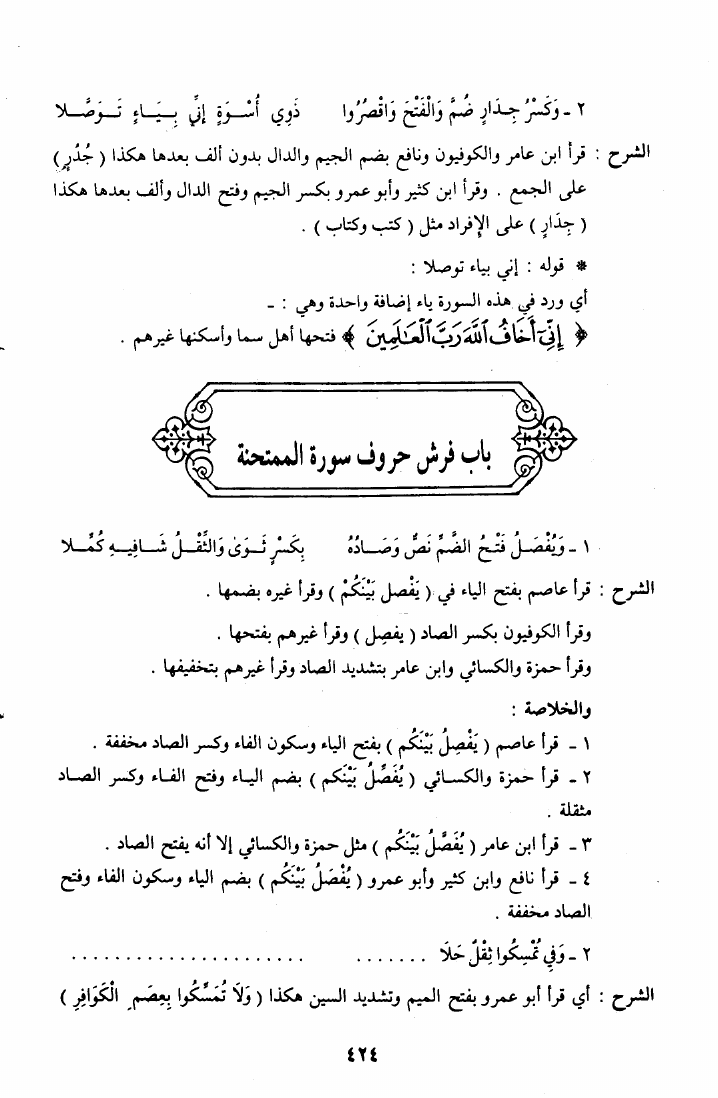 ٢ ـ وَكَسْرُ جِدَارٍ ضُمَّ وَالْفَتْحَ وَاقْصُرُوا ذَوِي أُسْوَةٍ إنِّي بِيَاءٍ تَوَصَّلا
الشرح : قرأ ابن عامر والكوفيون ونافع بضم الجيم والدال بدون ألف بعدها هكذا ( جُدُرٍ )
على الجمع . وقرأ ابن كثير وأبو عمرو بكسر الجيم وفتح الدال وألف بعدها هكذا
( جِدَارٍ ) على الإفراد مثل ( كتب وكتاب ) .
* قوله : إني بياء توصلا :
أي ورد في هذه السورة ياء إضافة واحدة وهي : ـ
﴿ إِنِّىٓ أَخَافُ ٱللَّهَ رَبَّ ٱلْعَٰلَمِينَ ﴾ فتحها أهل سما وأسكنها غيرهم .
باب فرش حروف سورة الممتحنة
١ ـ وَيُفْصَلُ فَتْحُ الضَّمِّ نَصٌّ وَصَادُهُ بِكَسْرٍ ثَوَى وَالثِّقْلُ شَافِيهِ كُمِّلا
الشرح : قرأ عاصم بفتح الياء في ( يَفْصل بَيْنَكُمْ ) وقرأ غيره بضمها .
وقرأ الكوفيون بكسر الصاد ( يفصِل ) وقرأ غيرهم بفتحها .
وقرأ حمزة والكسائي وابن عامر بتشديد الصاد وقرأ غيرهم بتخفيفها .
والخلاصة :
١ ـ قرأ عاصم ( يَفْصِلُ بَيْنَكُم ) بفتح الياء وسكون الفاء وكسر الصاد مخففة .
٢ ـ قرأ حمزة والكسائي ( يُفَصِّلُ بَيْنَكم ) بضم الياء وفتح الفاء وكسر الصاد
مثقلة .
٣ ـ قرأ ابن عامر ( يُفَصَّلُ بَيْنَكُم ) مثل حمزة والكسائي إلا أنه يفتح الصاد .
٤ ـ قرأ نافع وابن كثير وأبو عمرو ( يُفْصَلُ بَيْنَكُم ) بضم الياء وسكون الفاء وفتح
الصاد مخففة .
٢ ـ وَفِي تُمْسِكُوا ثِقْلٌ حَلَا ....... .......................
الشرح : أي قرأ أبو عمرو بفتح الميم وتشديد السين هكذا ( وَلَا تُمَسِّكُوا بِعِصَمِ الْكَوَافِرِ )
٤٢٤